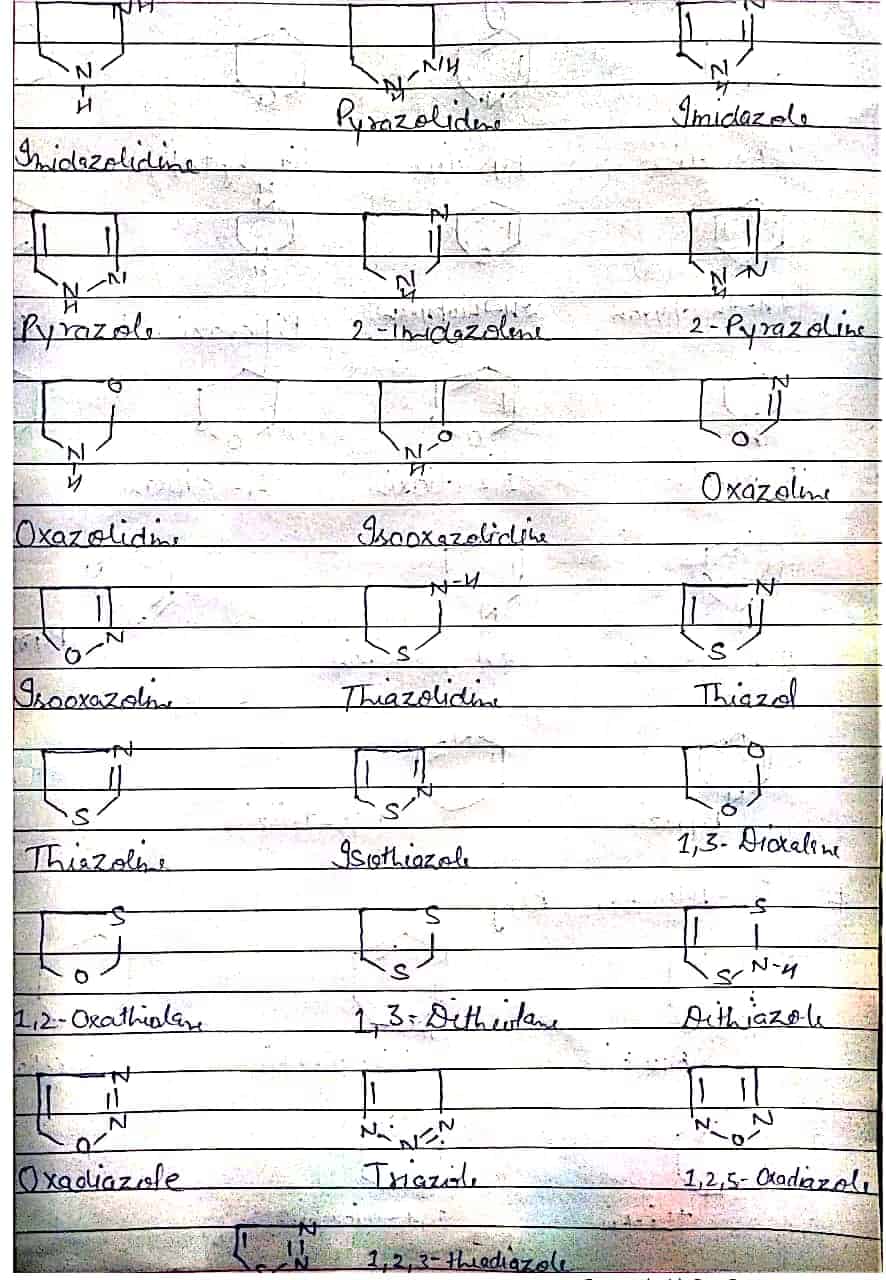 NH
N
H
N
H
NH
N
N
H
Pyrazolidine
Imidazole
Imidazolidine
N
H
N
N
N
H
N
H
N
Pyrazole
2-imidazoline
2-Pyrazoline
O
N
H
N
H
O
N
O
Oxazoline
Oxazolidine
Isooxazolidine
O
N
N-H
S
N
S
Isooxazoline
Thiazolidine
Thiazol
N
S
S
N
O
O
1,3-Dioxaline
Thiazoline
Isothiazole
S
O
S
S
S
S
N-H
1,2-Oxathiolane
1,3-Dithiolane
Dithiazole
N
N
O
N
N
N
N
O
N
Oxadiazole
Triazole
1,2,5-Oxadiazole
N
S
N
1,2,3-thiadiazole